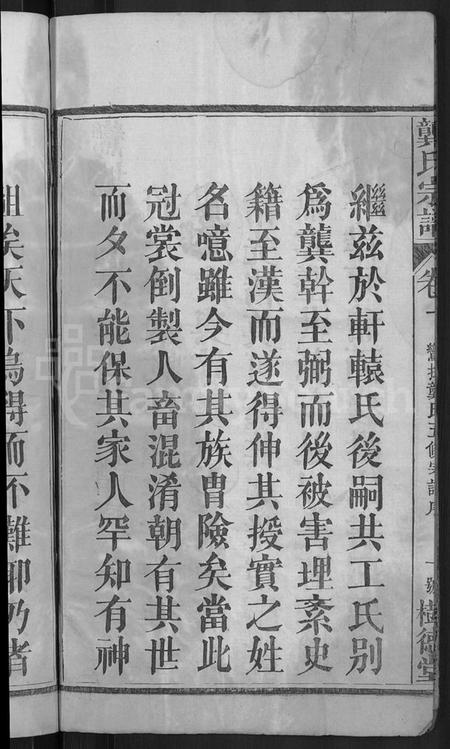 龔氏宗譜
卷一
龔氏五修宗譜序
樹德堂
繼茲於軒轅氏後嗣共工氏別
爲龔幹至弼而後被害埋紊史
籍至漢而遂得伸其投實之姓
名噫雖今有其族胄險矣當此
冠裳倒製人畜混淆朝有其世
而夕不能保其家人罕知有神
祖矣天下烏得而不難耶乃者